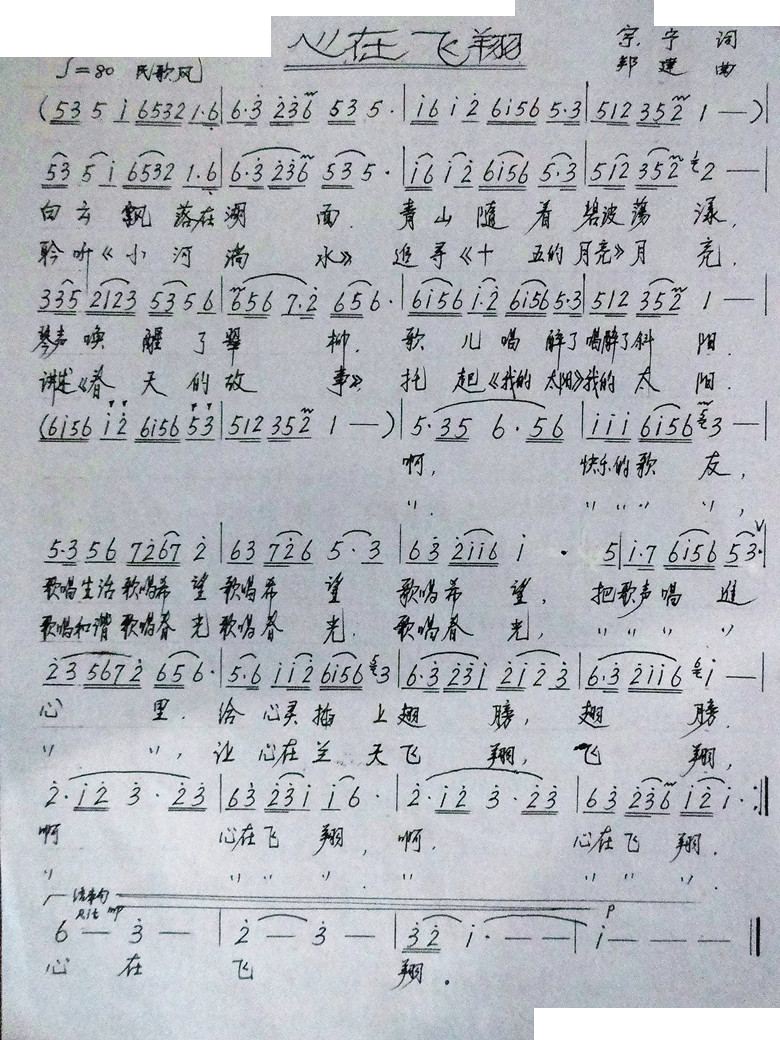 心在飞翔
宗宁 词
♩=80 民歌风
邦建 曲
(53 5 i 6532 1.6 | 6.3 236 53 5. | i6 i2 6i56 5.3 | 512 352 1 — )
53 5 i 6532 1.6 | 6.3 236 53 5. | i6 i2 6i56 5.3 | 512 352 2 — |
白云飘落在湖面. 青山随着碧波荡漾,
聆听《小河淌水》 追寻《十五的月亮》月亮.
335 2123 53 56 | 656 7.2 656. | 6i56 i.2 6i56 5.3 | 512 352 1 — |
琴声唤醒了翠柳. 歌儿唱醉了唱醉了斜阳.
讲述《春天的故事》. 托起《我的太阳》我的太阳.
(6i56 i2 6i56 53 | 512 352 1 — ) | 5.35 6.56 | iii 6i56 3 — |
啊, 快乐的歌友,
〃. 〃 〃 〃 〃,
5.3 56 7267 2 | 63 726 5.3 | 63 2ii6 i. 5 | i.7 6i56 53. |
歌唱生活歌唱希望歌唱希望 歌唱希望, 把歌声唱进
歌唱和谐歌唱春光歌唱春光. 歌唱春光, 〃 〃 〃 〃 〃
23 5672 656. | 5.6 ii2 6i56 3 | 6.3 23i 2i23 | 6.3 2ii6 i — |
心里. 给心灵插上翅膀, 翅膀.
〃 〃, 让心在兰天飞翔, 飞翔,
2.i2 3.23 | 63 23i i6. | 2.i2 3.23 | 63 236 i2i. :‖
啊 心在飞翔, 啊. 心在飞翔.
〃 〃 〃 〃 〃. 〃. 〃 〃 〃 〃.
结束句
Rit mp p
6 — 3 — | 2 — 3 — | 32 i. — — | i — — — ‖
心在飞翔.